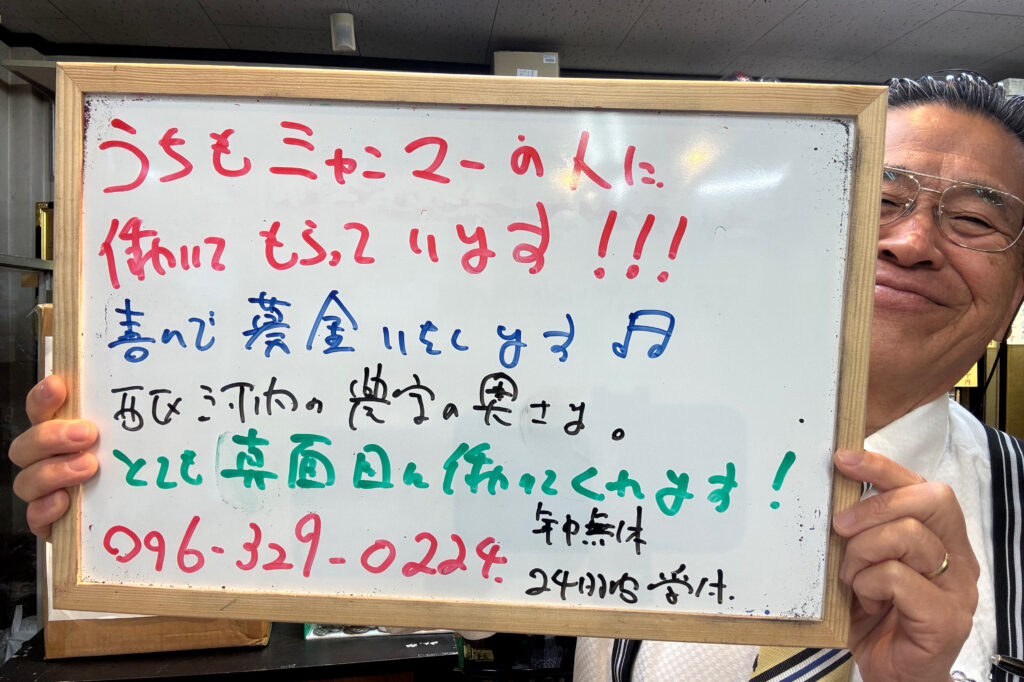 うちもミャンマーの人に
働いてもらっています!!!
喜んで募金いたします♫
西区河内の農家の奥さま。
とても真面目に働いてくれます!
096-329-0224.
年中無休
24時間受付.